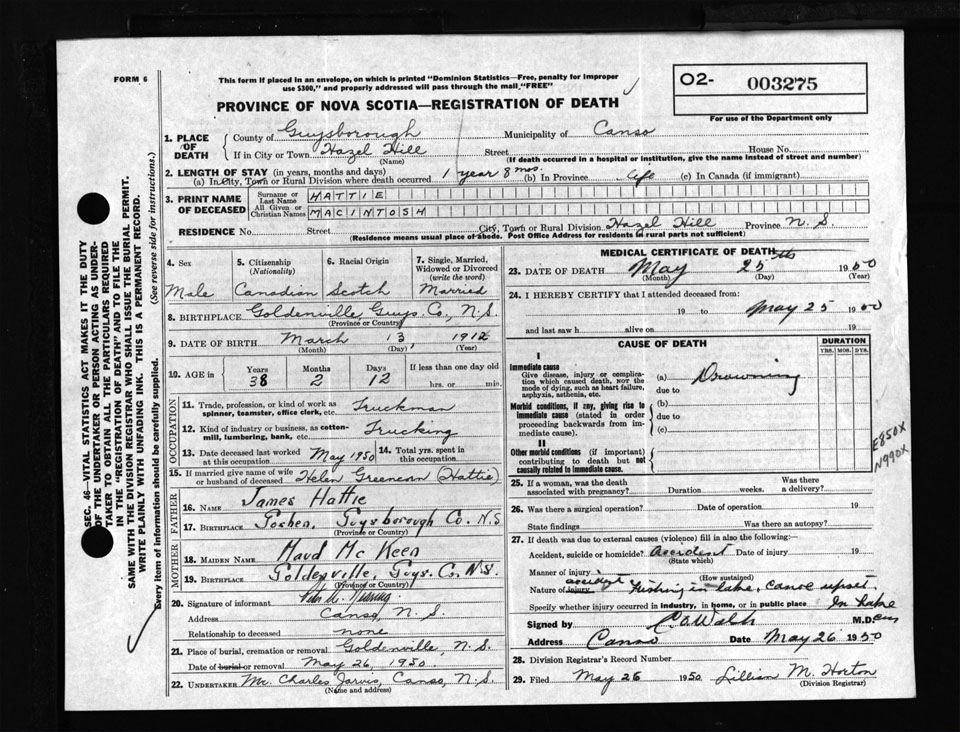 FORM 6
This form if placed in an envelope, on which is printed "Dominion Statistics—Free, penalty for improper
use $300," and properly addressed will pass through the mail "FREE"
O2- 003275
For use of the Department only
PROVINCE OF NOVA SCOTIA—REGISTRATION OF DEATH
1. PLACE OF DEATH
County of Guysborough Municipality of Canso
If in City or Town Hazel Hill Street House No.
(Name) (If death occurred in a hospital or institution, give the name instead of street and number)
2. LENGTH OF STAY (in years, months and days)
(a) In City, Town or Rural Division where death occurred 1 year 8 mos. (b) In Province Life (c) In Canada (if immigrant)
3. PRINT NAME OF DECEASED
Surname or Last Name HATTIE
All Given or Christian Names MACINTOSH
RESIDENCE No. Street City, Town or Rural Division Hazel Hill Province N. S
(Residence means usual place of abode. Post Office Address for residents in rural parts not sufficient)
4. Sex Male
5. Citizenship (Nationality) Canadian
6. Racial Origin Scotch
7. Single, Married, Widowed or Divorced (write the word) Married
8. BIRTHPLACE Goldenville, Guys. Co., N.S.
(Province or Country)
9. DATE OF BIRTH March 13, 1912
(Month) (Day) (Year)
10. AGE in Years 38 Months 2 Days 12 If less than one day old hrs. or min.
OCCUPATION
11. Trade, profession, or kind of work as spinner, teamster, office clerk, etc. Truckman
12. Kind of industry or business, as cotton-mill, lumbering, bank, etc. Trucking
13. Date deceased last worked at this occupation May 1950 14. Total yrs. spent in this occupation
15. If married give name of wife or husband of deceased Helen Greencorn (Hattie)
FATHER
16. NAME James Hattie
17. BIRTHPLACE Goshen, Guysborough Co. N.S
(Province or Country)
MOTHER
18. MAIDEN NAME Maud McKeen
19. BIRTHPLACE Goldenville, Guys. Co. N.S.
(Province or Country)
20. Signature of informant
Address Canso, N. S.
Relationship to deceased none
21. Place of burial, cremation or removal Goldenville, N.S.
Date of burial or removal May 26, 1950.
22. UNDERTAKER Mr. Charles Jarvis, Canso, N.S.
(Name and address)
MEDICAL CERTIFICATE OF DEATH
23. DATE OF DEATH May 25th 1950
(Month) (Day) (Year)
24. I HEREBY CERTIFY that I attended deceased from:
19 to May 25 1950
and last saw h alive on 19
CAUSE OF DEATH
DURATION
YRS. MOS. DYS.
I
Immediate cause
Give disease, injury or complication which caused death, NOT the mode of dying, such as heart failure, asphyxia, asthenia, etc.
(a) Drowning
due to
Morbid conditions, if any, giving rise to immediate cause (stated in order proceeding backwards from immediate cause).
(b)
due to
(c)
II
Other morbid conditions (if important) contributing to death but not causally related to immediate cause.
E850X
N990X
25. If a woman, was the death associated with pregnancy? Duration weeks. Was there a delivery?
26. Was there a surgical operation? Date of operation 19
State findings Was there an autopsy?
27. If death was due to external causes (violence) fill in also the following:
Accident, suicide or homicide? Accident Date of injury 19
(State which)
Manner of injury
(How sustained)
Nature of injury accident Fishing in lake, canoe upset.
Specify whether injury occurred in industry, in home, or in public place In lake
Signed by C A Walsh M.D.
Address Canso Date May 26 1950
28. Division Registrar's Record Number
29. Filed May 26 1950 Lillian M. Horton
(Division Registrar)
SEC. 46—VITAL STATISTICS ACT MAKES IT THE DUTY
OF THE UNDERTAKER OR PERSON ACTING AS UNDER-
TAKER TO OBTAIN ALL THE PARTICULARS REQUIRED
IN THE "REGISTRATION OF DEATH" AND TO FILE THE
SAME WITH THE DIVISION REGISTRAR WHO SHALL ISSUE THE BURIAL PERMIT.
WRITE PLAINLY WITH UNFADING INK. THIS IS A PERMANENT RECORD.
Every item of information should be carefully supplied. (See reverse side for instructions.)